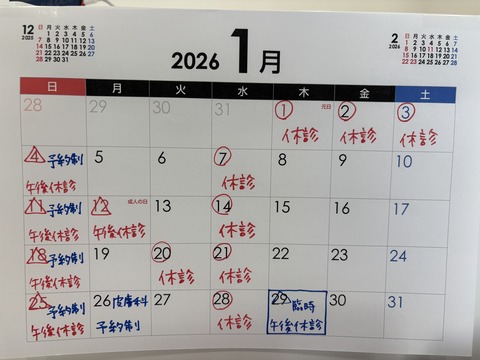 12
2025
日 月 火 水 木 金 土
1 2 3 4 5 6
7 8 9 10 11 12 13
14 15 16 17 18 19 20
21 22 23 24 25 26 27
28 29 30 31
2026 1月
2
2026
日 月 火 水 木 金 土
1 2 3 4 5 6 7
8 9 10 11 12 13 14
15 16 17 18 19 20 21
22 23 24 25 26 27 28
日 月 火 水 木 金 土
28 29 30 31 1 元日 2 3
休診 休診 休診
4 予約制 5 6 7 8 9 10
午後休診 休診
11 予約制 12 成人の日 13 14 15 16 17
午後休診 午後休診 休診
18 予約制 19 20 21 22 23 24
午後休診 休診 休診
25 予約制 26 皮膚科 27 28 29 臨時 30 31
午後休診 予約制 休診 午後休診